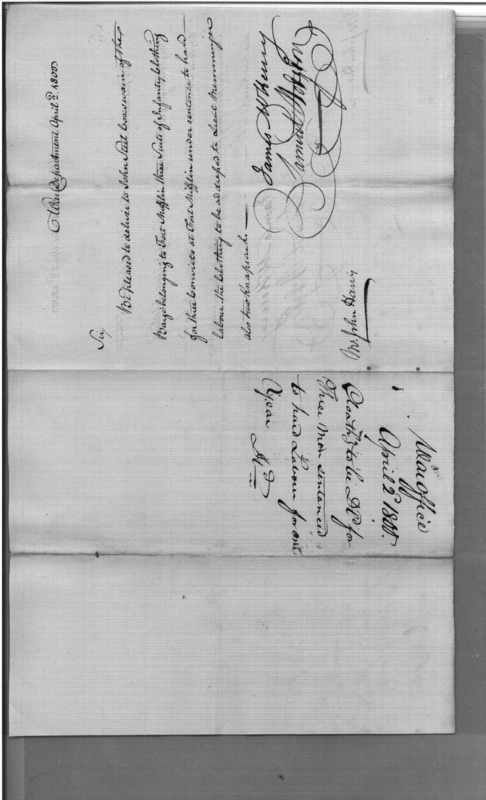 War Department April 2d. 1800
Sir,
Be pleased to deliver to John Peet boatswain of the
Barge belonging to Fort Mifflin three Suits of Infantry clothing
for three convicts at Fort Mifflin under sentence to hard
labour. the clothing to be addressed to Lieut Muhlenberg
also two knapsacks —
James McHenry
Samuel Hodgdon
Mr John Harris
War Office
April 2d 1800.
to be Dd for
Three Men sentenced
to hard Labour for one
Year